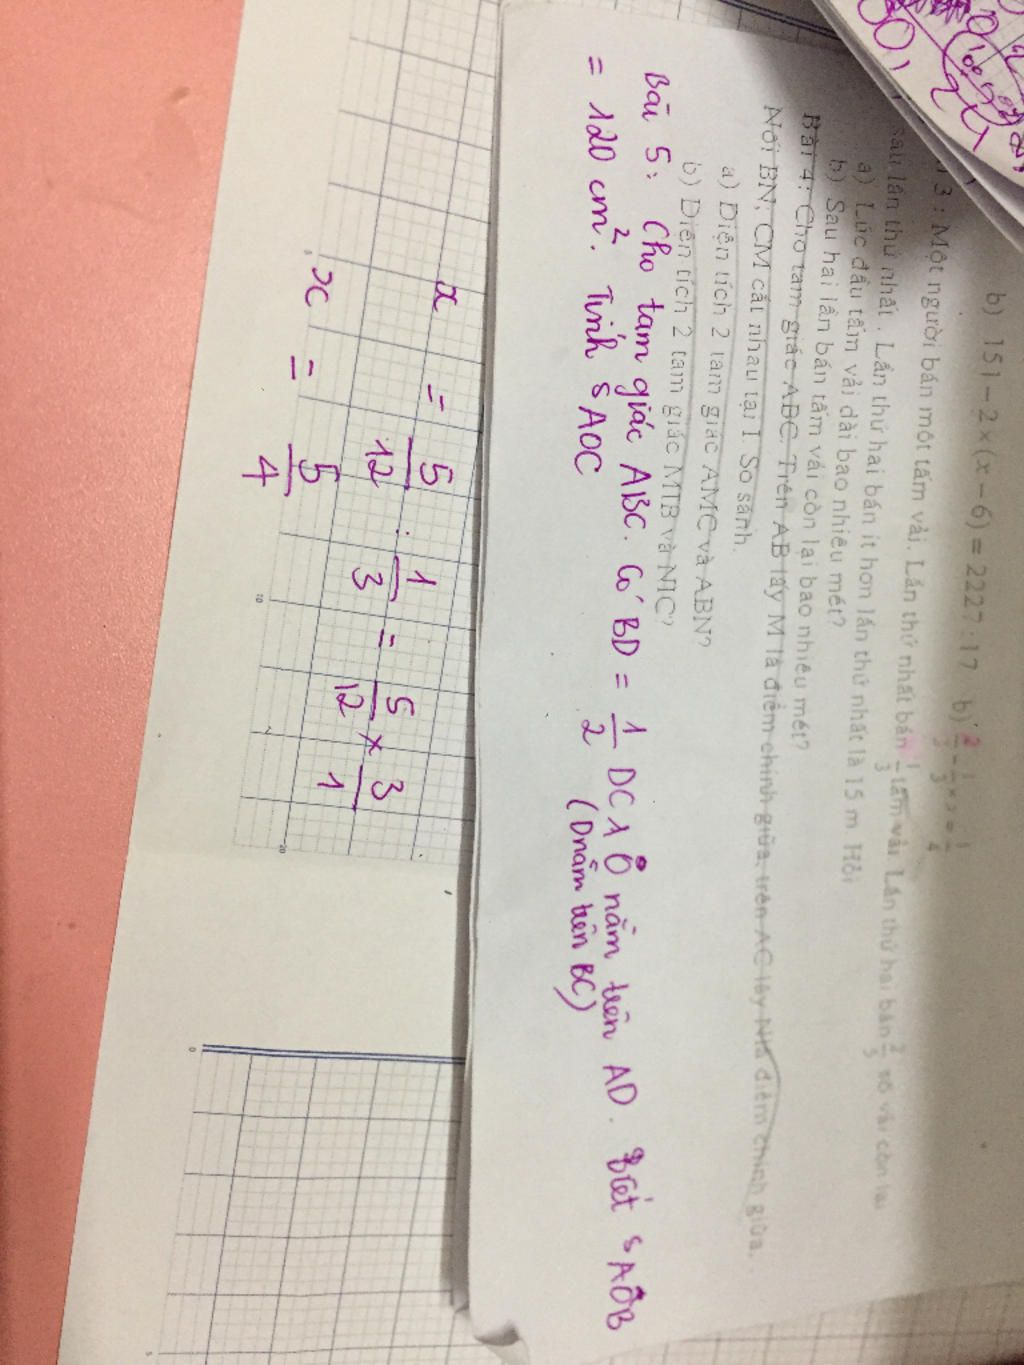 b) 151 – 2 × (x – 6) = 2227 : 17 b) 2/3 - 1/3 × x = 1/4
3 : Một người bán một tấm vải. Lần thứ nhất bán 1/3 tấm vải. Lần thứ hai bán 2/5 số vải còn lại
sau lần thứ nhất . Lần thứ hai bán ít hơn lần thứ nhất là 15 m Hỏi
a) Lúc đầu tấm vải dài bao nhiêu mét?
b) Sau hai lần bán tấm vải còn lại bao nhiêu mét?
Bài 4: Cho tam giác ABC. Trên AB lấy M là điểm chính giữa, trên AC lấy N là điểm chính giữa.
Nối BN; CM cắt nhau tại I. So sánh.
a) Diện tích 2 tam giác AMC và ABN?
b) Diện tích 2 tam giác MIB và NIC?
Bài 5: Cho tam giác ABC. Có BD = 1/2 DC, O nằm trên AD. Biết SAOB
(D nằm trên BC)
= 120 cm². Tính SAOC
x = 5/12 : 1/3 = 5/12 × 3/1
x = 5/4